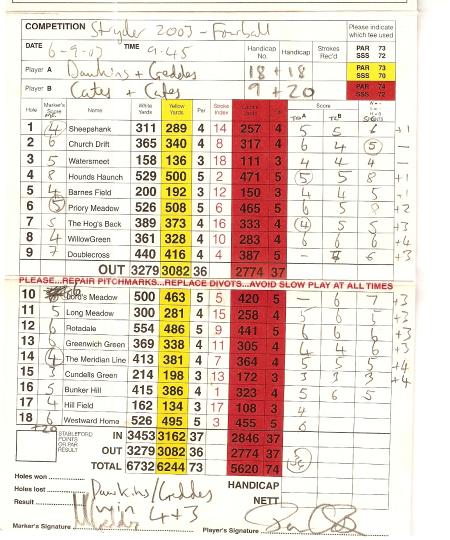 COMPETITION Stryder 2003 - Fourball Please indicate which tee used
DATE 6-9-03 TIME 9.45 Handicap No. Handicap Strokes Rec'd PAR 73 SSS 72
Player A Dawkins + Geddes 18 + 18 PAR 73 SSS 70
Player B Cates + Cates 9 + 20 PAR 74 SSS 72
Hole Marker's Score Name White Yards Yellow Yards Par Stroke Index Par Score A B
1 4 Sheepshank 311 289 4 14 257 4 5 5 6 +1
2 6 Church Drift 365 340 4 8 317 4 6 4 5 -
3 5 Watersmeet 158 136 3 18 111 3 4 4 4 -
4 8 Hounds Haunch 529 500 5 2 471 5 5 5 8 +1
5 4 Barnes Field 200 192 3 12 150 3 4 4 5 +1
6 5 Priory Meadow 526 508 5 6 465 5 6 5 8 +2
7 5 The Hog's Back 389 373 4 16 333 4 4 5 5 +3
8 4 WillowGreen 361 328 4 10 283 4 6 6 6 +4
9 7 Doublecross 440 416 4 4 387 5 - 7 6 +3
OUT 3279 3082 36 2774 37
PLEASE...REPAIR PITCHMARKS...REPLACE DIVOTS...AVOID SLOW PLAY AT ALL TIMES
10 6 Lord's Meadow 500 463 5 5 420 5 - 6 7 +3
11 5 Long Meadow 300 281 4 15 258 4 5 6 5 +3
12 6 Rotadale 554 486 5 9 441 5 6 6 6 +3
13 6 Greenwich Green 369 338 4 11 305 4 4 4 6 +3
14 4 The Meridian Line 413 381 4 7 364 4 5 5 5 +4
15 3 Cundells Green 214 198 3 13 172 3 3 3 3 +4
16 5 Bunker Hill 415 386 4 1 323 4 5 6 5
17 4 Hill Field 162 134 3 17 108 3 4
18 6 Westward Home 526 495 5 3 455 5 6
+20
STABLEFORD POINTS OR PAR RESULT
IN 3453 3162 37 2846 37
OUT 3279 3082 36 2774 37
TOTAL 6732 6244 73 5620 74
Holes won HANDICAP
Holes lost Dawkins/Geddes NETT
Result win 4+3
Marker's Signature Player's Signature